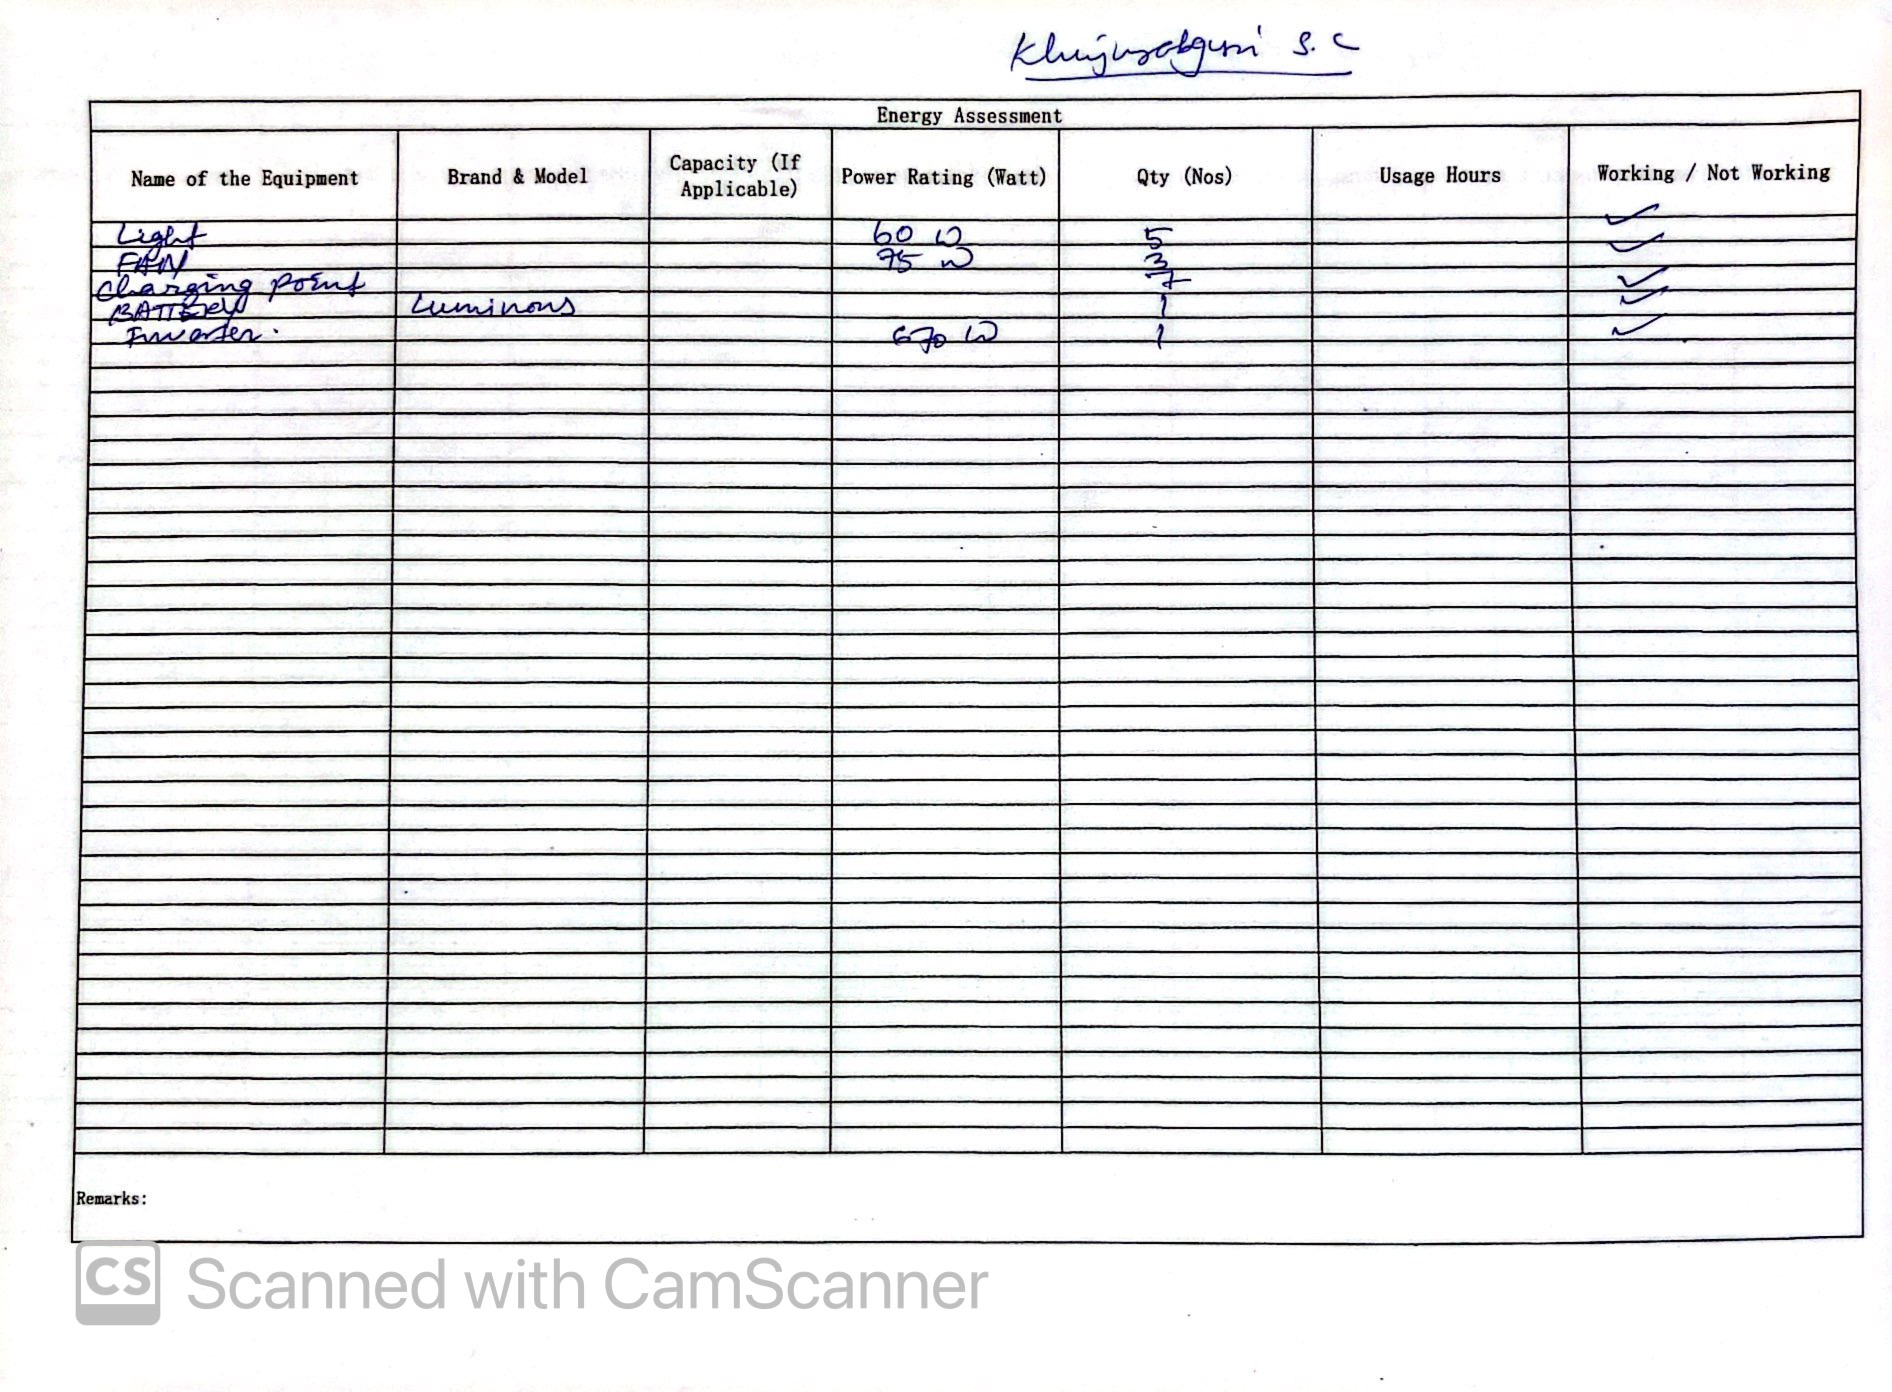 S. C
Energy Assessment
Name of the Equipment Brand & Model Capacity (If Applicable) Power Rating (Watt) Qty (Nos) Usage Hours Working / Not Working
Light 60 W 5 ✓
FAN 75 W 3 ✓
Charging Point 7 ✓
BATTERY Luminous 1 ✓
Inverter. 670 W 1 ✓
Remarks:
CS Scanned with CamScanner